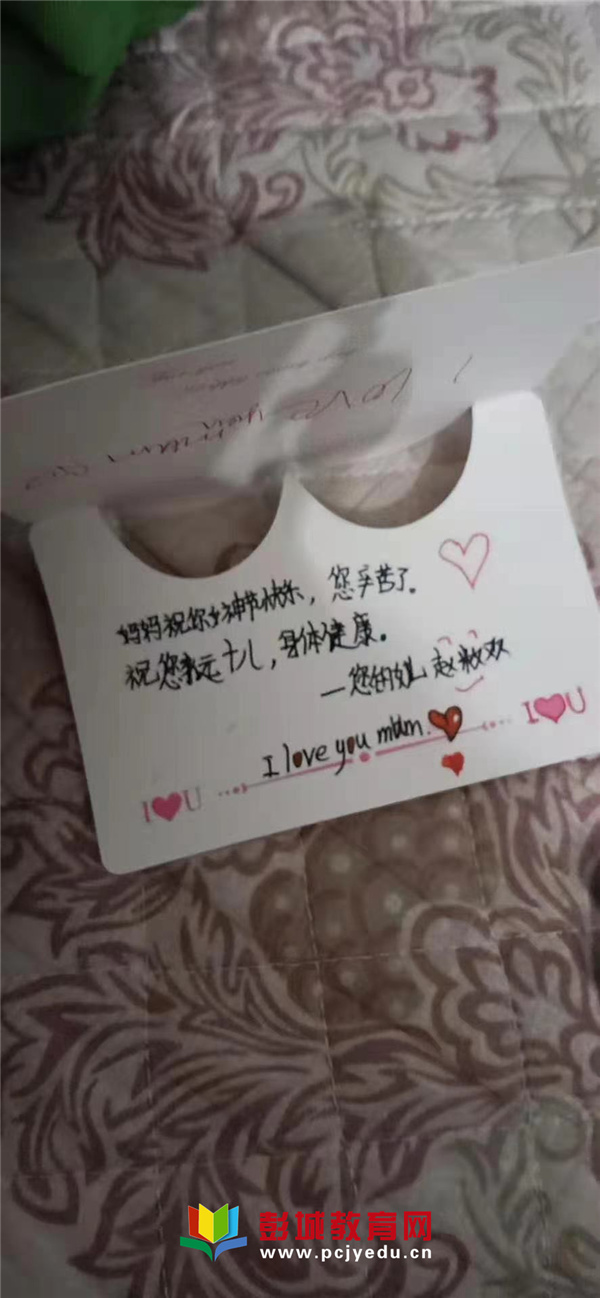 I Love you
妈妈祝你女神节快乐，您辛苦了。
祝您永远十八，身体健康。
—您的女儿 赵
I love you mum.
I U
I U
彭城教育网
www.pcjyedu.cn